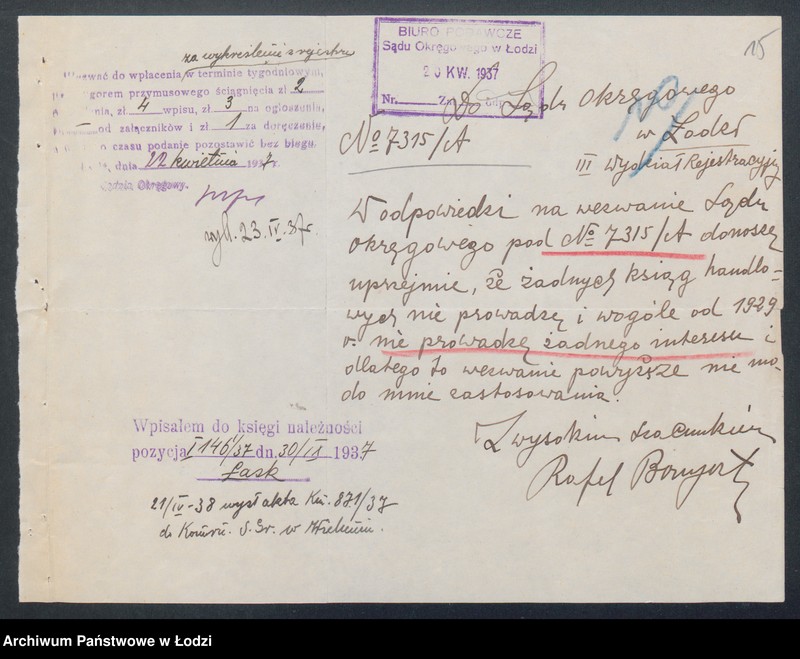 15
BIURO PODAWCZE
Sądu Okręgowego w Łodzi
20 KW. 1937
Nr.
za wykreślenie z rejestru
Wezwać do wpłacenia w terminie tygodniowym,
gorem przymusowego ściągnięcia zł 2
zł 4 wpisu, zł 3 na ogłoszenia,
od załączników i zł 1 za doręczenie,
o czasu podanie pozostawić bez biegu.
dnia 22 kwietnia 1937 r.
Sędzia Okręgowy.
wył. 23. IV. 37 r.
Do Sądu Okręgowego
w Łodzi
III Wydział Rejestracyjny
No 7315/A
W odpowiedzi na wezwanie Sądu
Okręgowego pod No 7315/A donoszę
uprzejmie, że żadnych ksiąg handlo-
wych nie prowadzę i wogóle od 1929
r. nie prowadzę żadnego interesu i
dlatego to wezwanie powyższe nie ma
do mnie zastosowania.
Z wysokim szacunkiem
Rafel
Wpisałem do księgi należności
pozycja I 146/37 dn. 30/IX 1937
Łask
21/IV-38 wysł akta Km. 871/37
do Komorn. S. Gr. w
Archiwum Państwowe w Łodzi